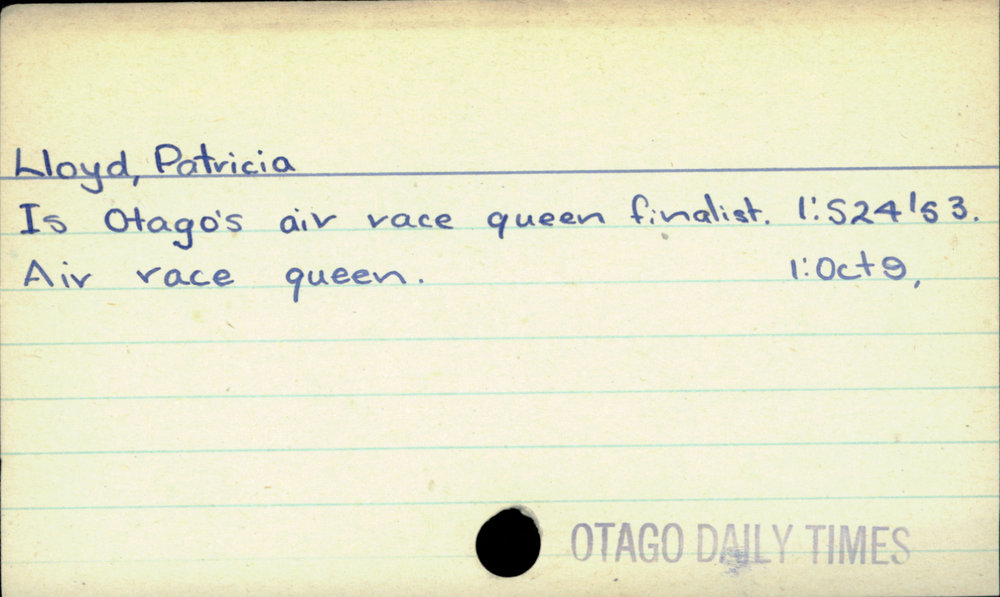 Lloyd, Patricia
Is Otago's air race queen finalist. 1:S24'53.
Air race queen. 1:Oct 9,
OTAGO DAILY TIMES